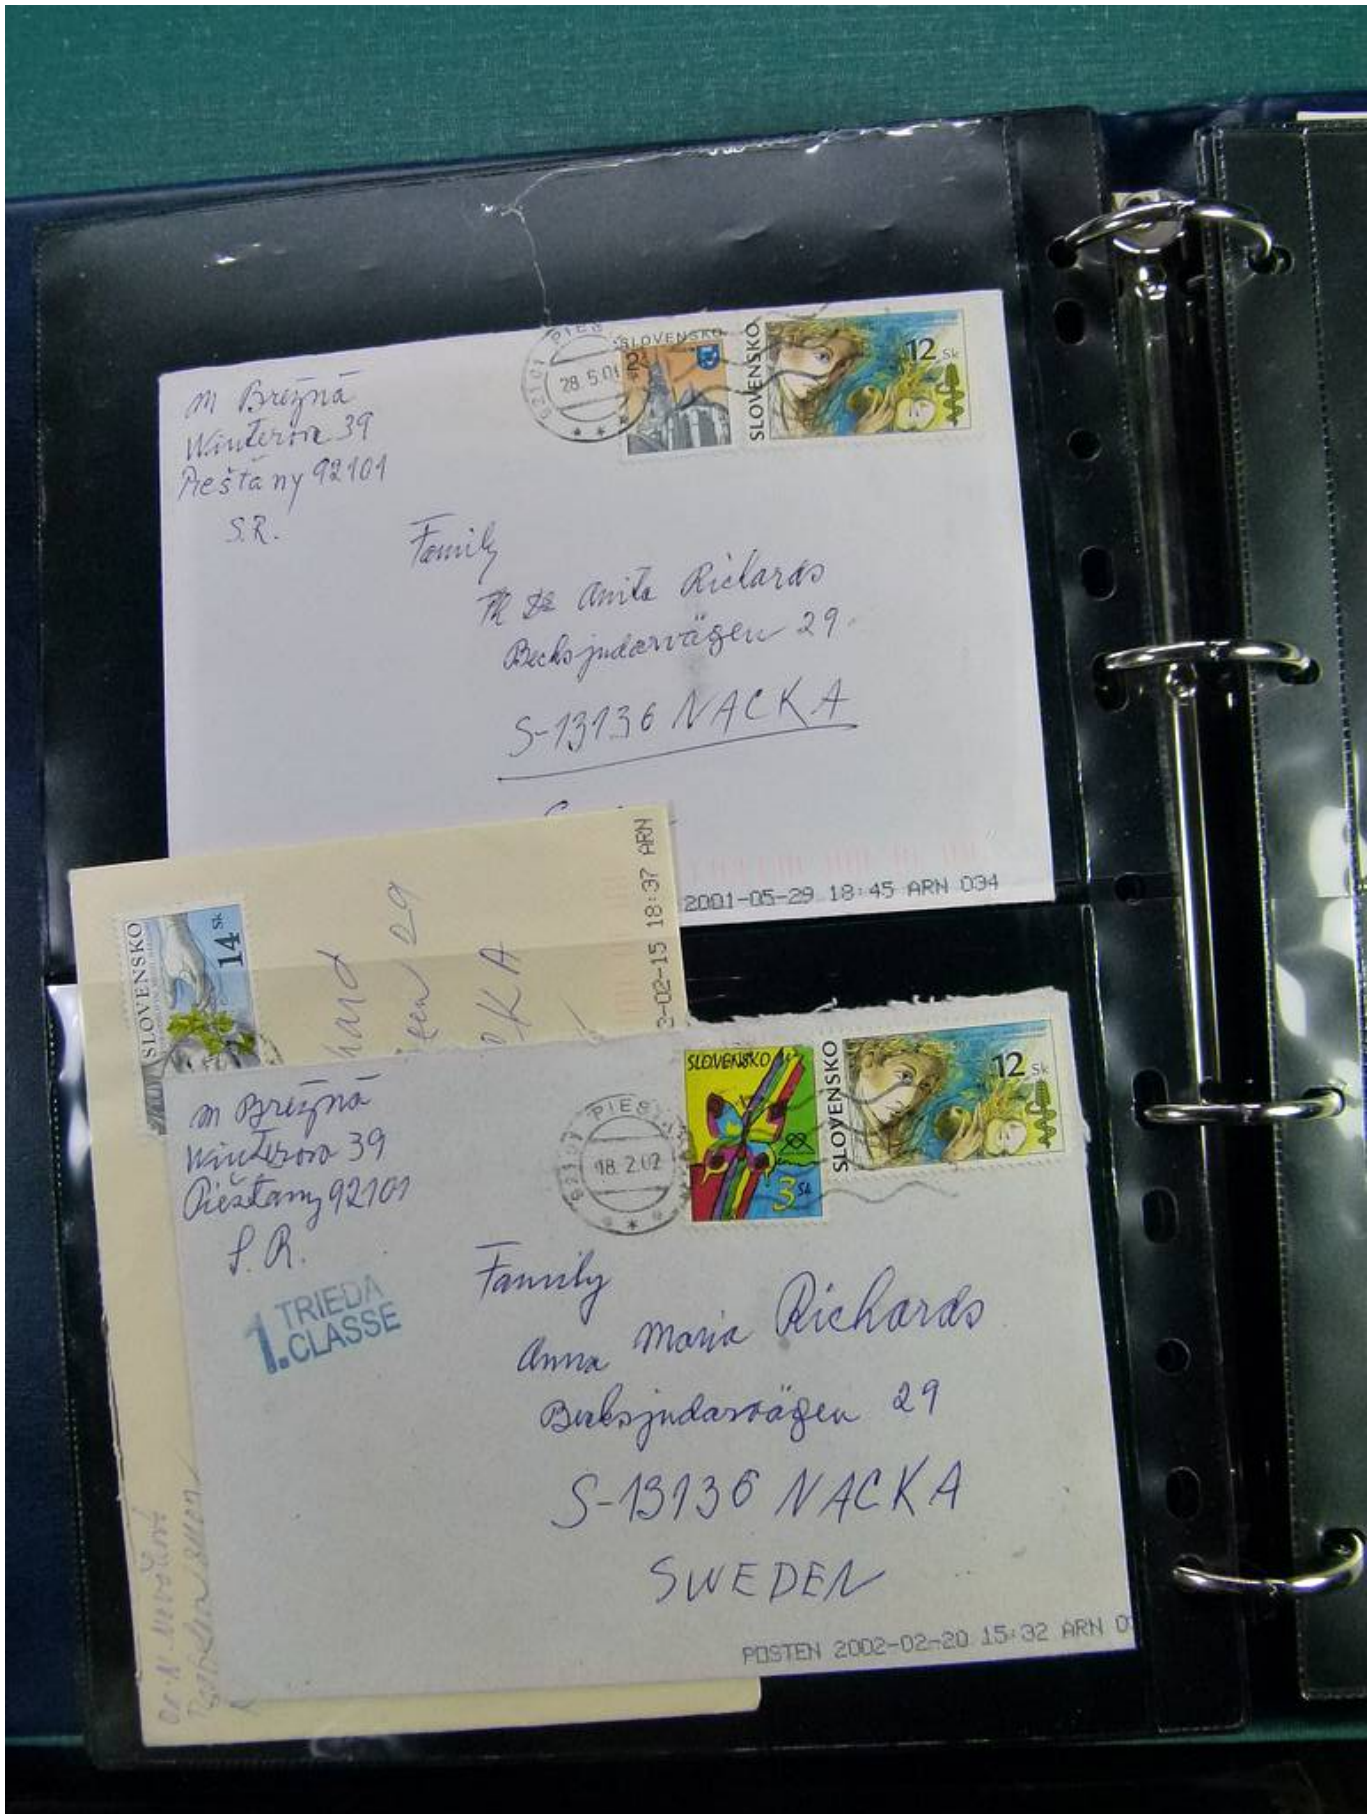 M Brezna
Winterova 39
Piešťany 92101
S.R.
92101 PIEŠ
28.5.01
SLOVENSKO
2
SLOVENSKO
12 Sk
Family
Anita Richards
29
S-13136 NACKA
2001-05-29 18:45 ARN 034
SLOVENSKO
14 Sk
hard
29
CKA
3-02-15 18:37 ARN
M Brezna
Winterova 39
Piešťany 92101
S.R.
1. TRIEDA
CLASSE
92101 PIEŠ
18.2.02
SLOVENSKO
3 Sk
SLOVENSKO
12 Sk
Family
Anna Maria Richards
29
S-13136 NACKA
SWEDEN
POSTEN 2002-02-20 15:32 ARN 0